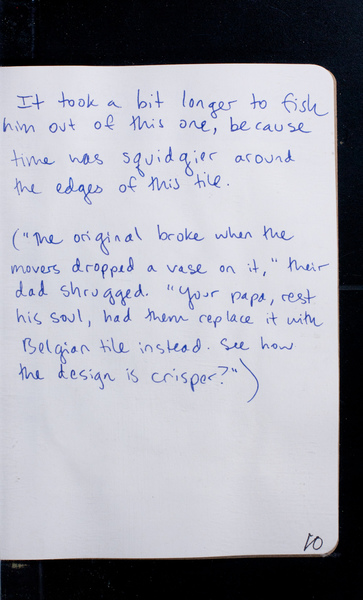 It took a bit longer to fish
him out of this one, because
time was squidgier around
the edges of this tile.
("The original broke when the
movers dropped a vase on it," their
dad shrugged. "Your papa, rest
his soul, had them replace it with
Belgian tile instead. See how
the design is crisper?")
10